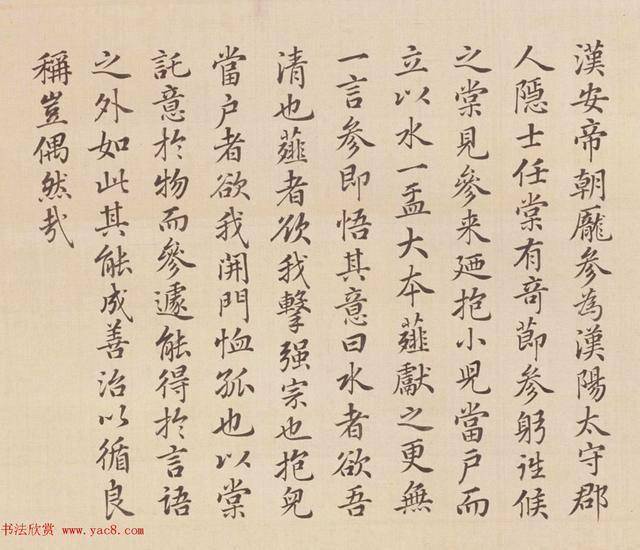 漢安帝朝龐參為漢陽太守郡
人隱士任棠有奇節參躬詣候
之棠見參来廼抱小児當戶而
立以水一盂大本薤獻之更無
一言参即悟其意曰水者欲吾
清也薤者欲我擊强宗也抱兒
當戶者欲我開門恤孤也以棠
託意於物而參遽能得於言語
之外如此其能成善治以循良
稱豈偶然哉
书法欣赏 www.yac8.com